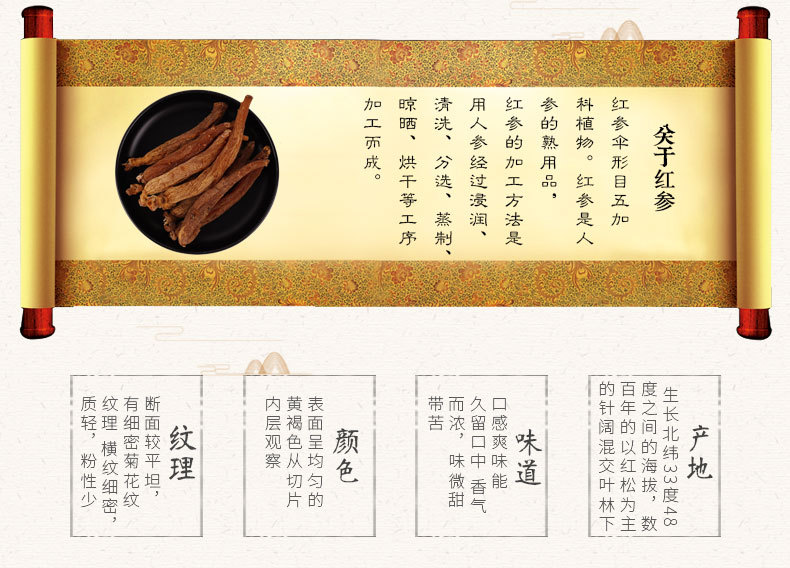 关于红参
红参伞形目五加
科植物。红参是人
参的熟用品，
红参的加工方法是
用人参经过浸润、
清洗、分选、蒸制、
晾晒、烘干等工序
加工而成。
产地
生长北纬33度48
度之间的海拔，数
百年的以红松为主
的针阔混交叶林下
味道
口感爽味能
久留口中 香气
而浓，味微甜
带苦
颜色
表面呈均匀的
黄褐色从切片
内层观察
纹理
断面较平坦，
有细密菊花纹
纹理 横纹细密，
质轻，粉性少